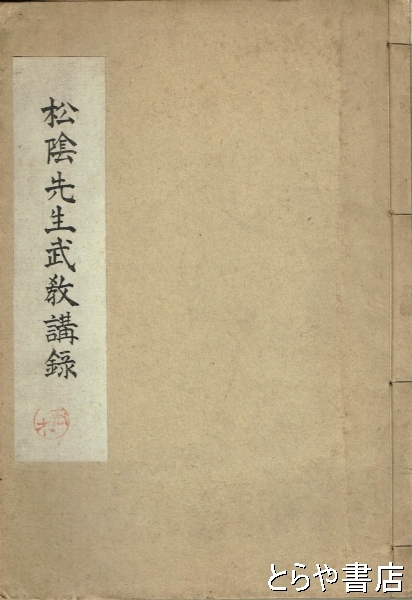 松陰先生武教講録
とらや書店